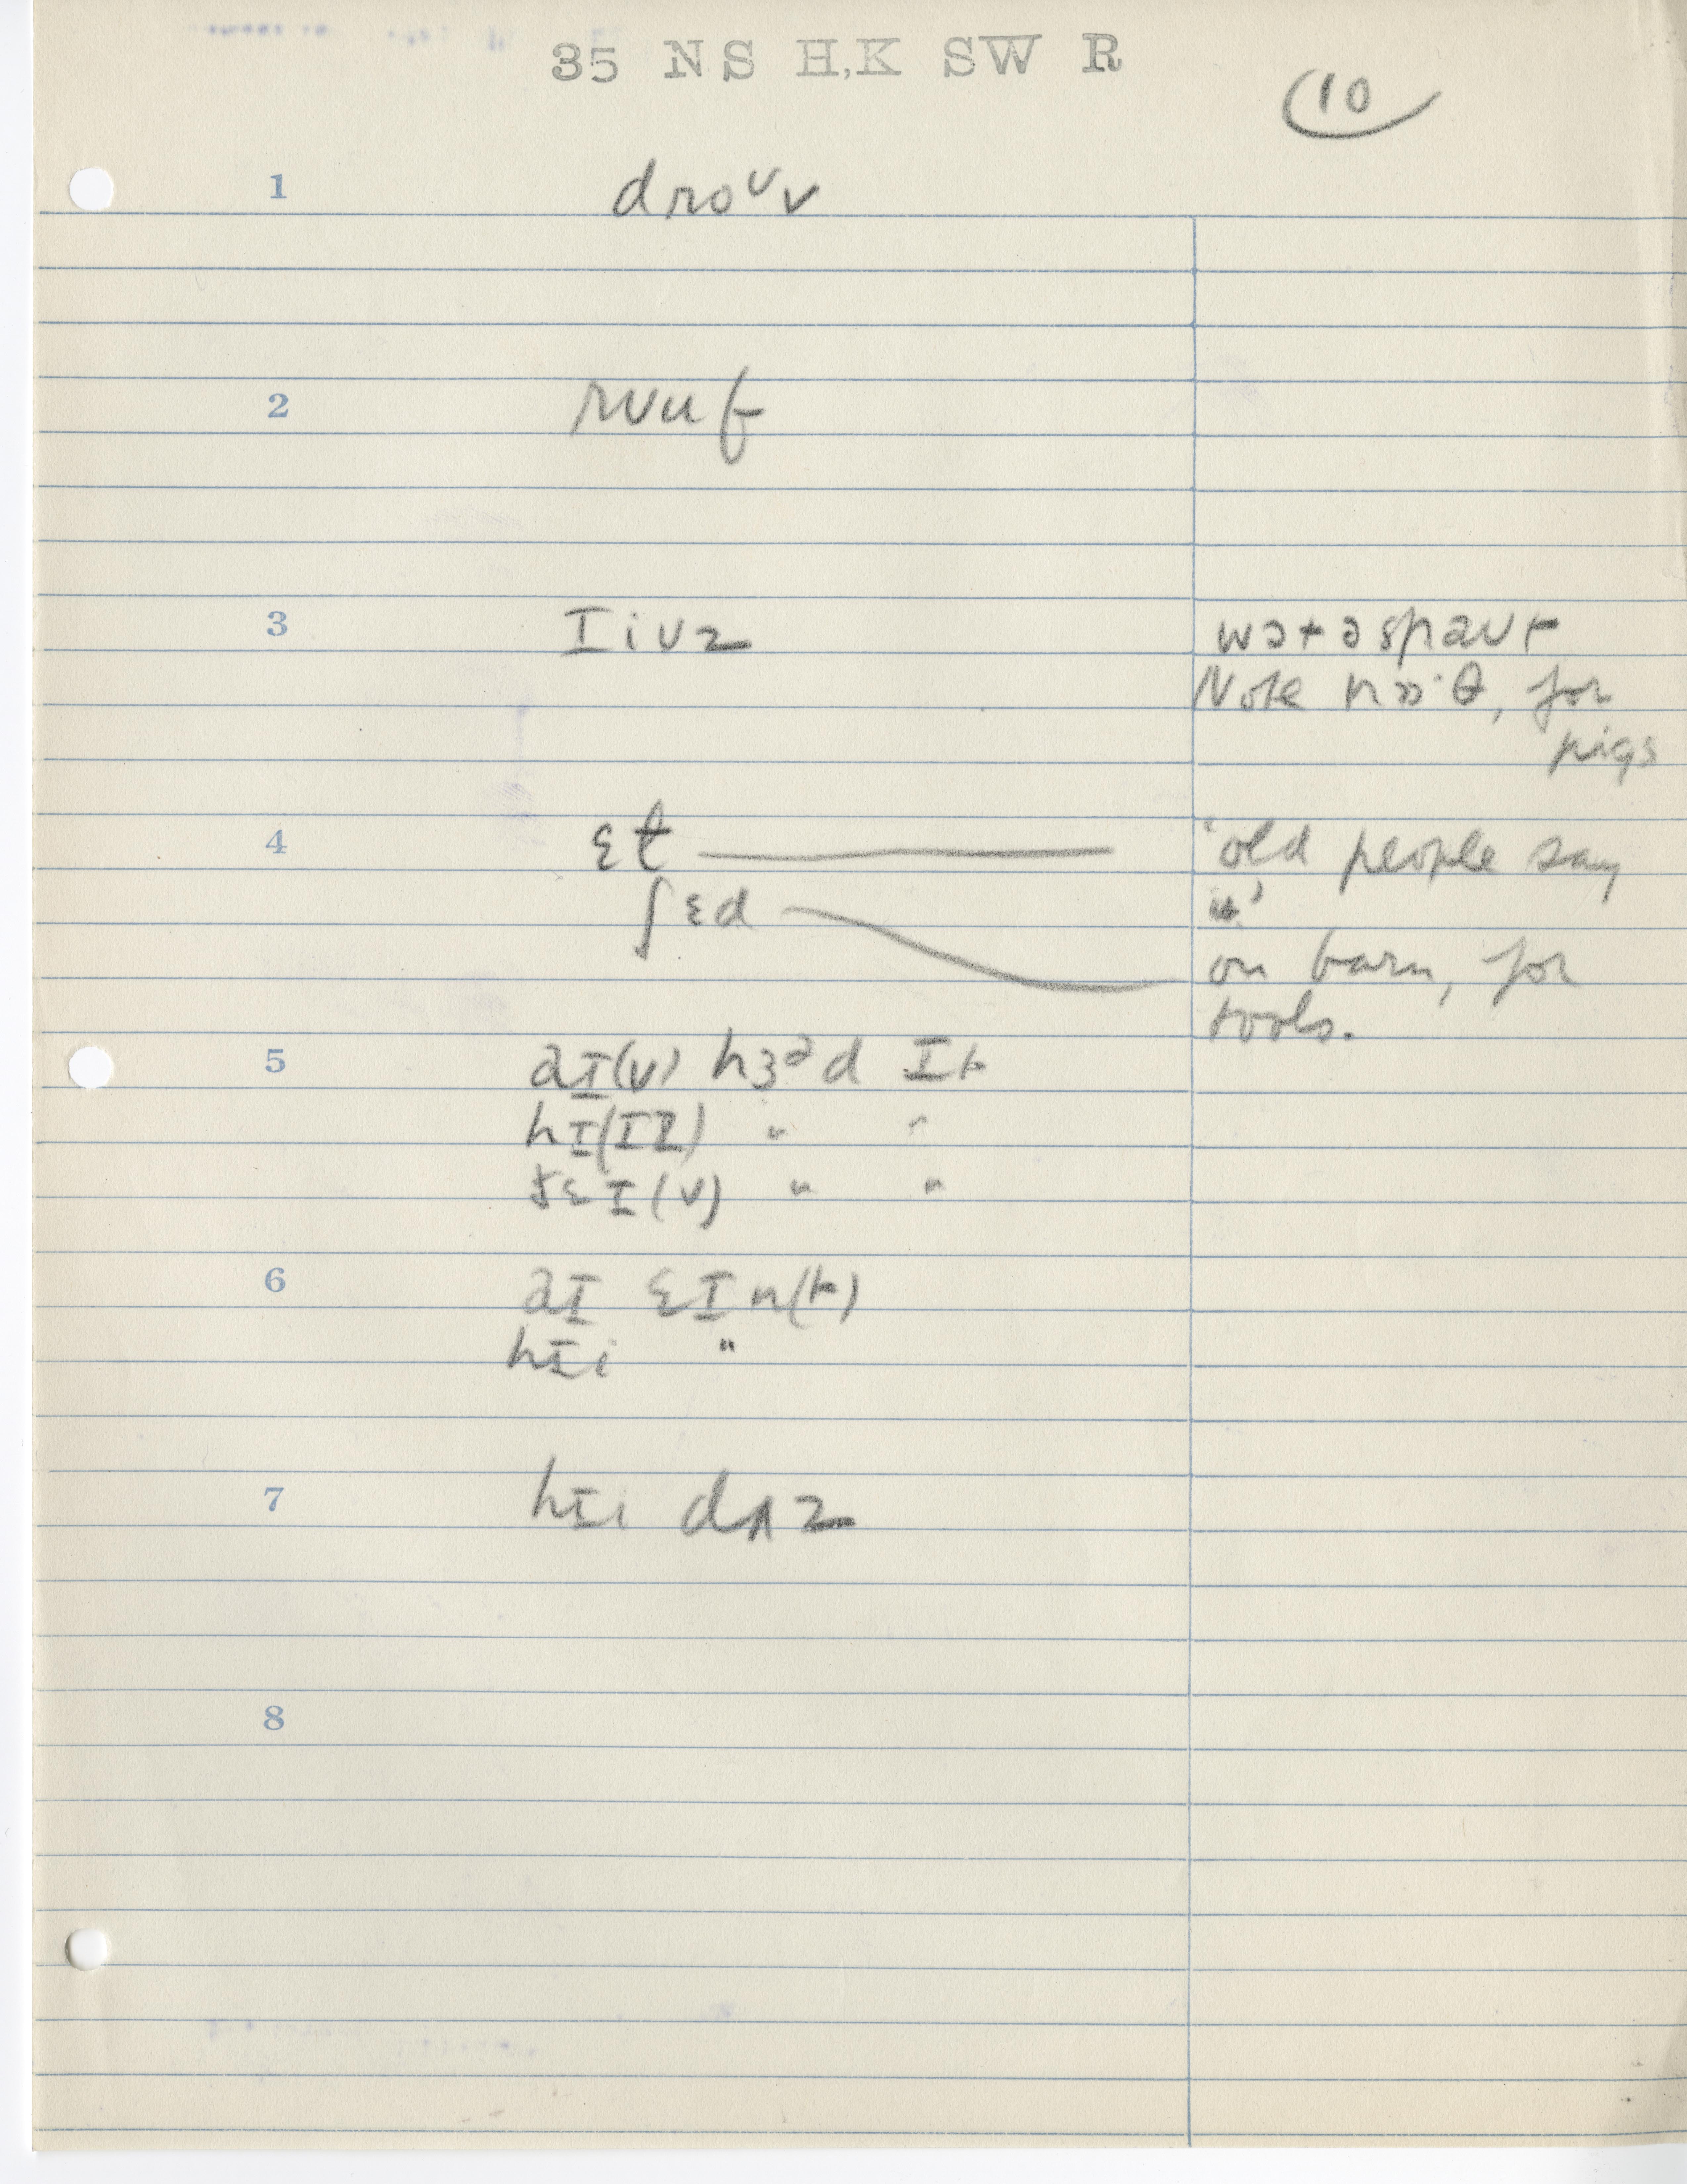 35 NS H,K SW R
10
1 droᴜv
2 rʊuf
3 Iiʊz
wɔtəspaʊt
Note
, for
pigs
4 ɛt
'old people say
it.'
ʃɛd
on barn, for
tools.
5 aɪ(v) hɜəd ɪt
hɪ(ɪz) " "
ðɛɪ(v) " "
6 aɪ ɛɪn(t)
hɪi "
7 hɪi dʌz
8